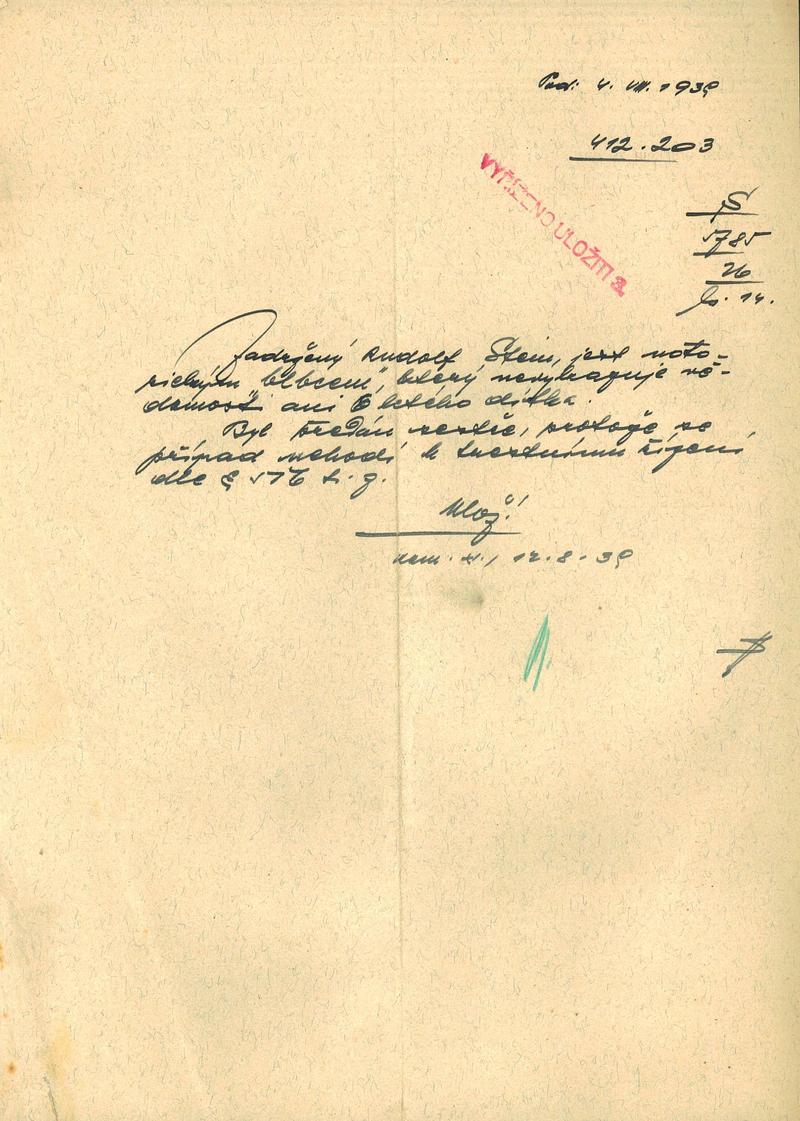 Pod: 4. VIII. 1939
412.203
VYŘÍZENO ULOŽITI 3.
S
5785
26
Zadržený Rudolf Stein, jest noto-
rickým „blbcem", který nevykazuje vě-
domostí ani 6 letého dítka.
Byl předán sestře, protože se
případ nehodí k trestnímu řízení
dle §
Ulož!
12.8.39